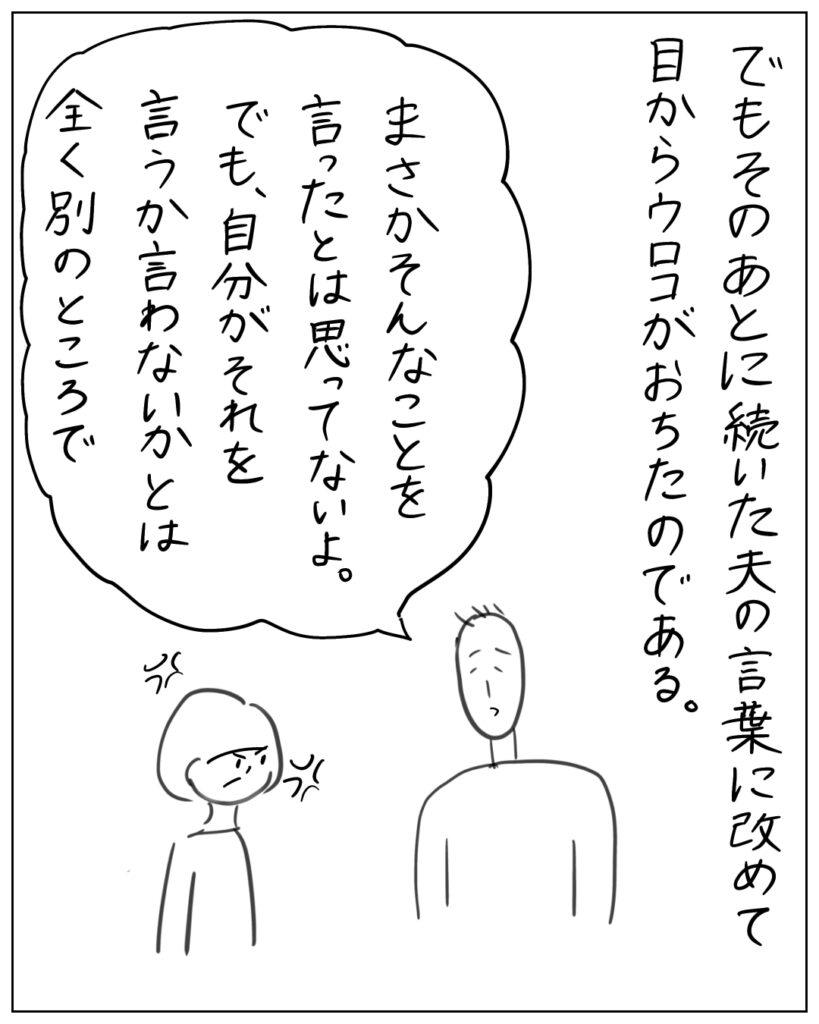 でもそのあとに続いた夫の言葉に改めて
目からウロコがおちたのである。
まさかそんなことを
言ったとは思ってないよ。
でも、自分がそれを
言うか言わないかとは
全く別のところで